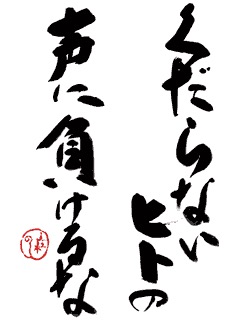 くだらない
ヒトの
声に負けるな